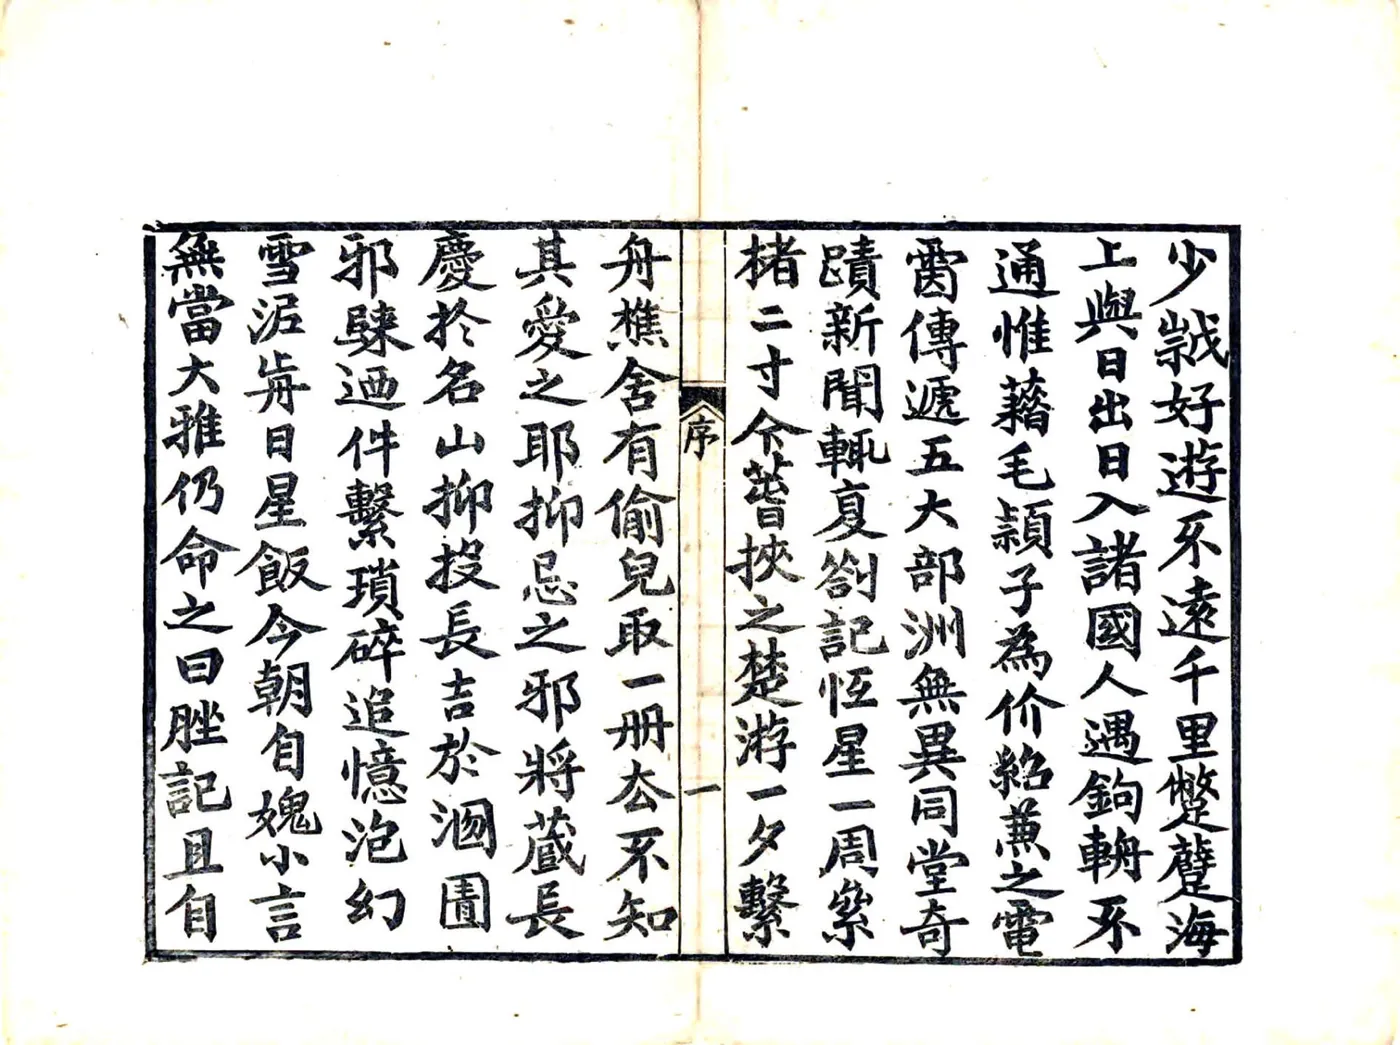 少誐好遊不遠千里蹩躠海
上與日出日入諸國人遇鉤輈不
通惟藉毛穎子為价紹兼之電
啚傳遞五大部洲無異同堂奇
蹟新聞輒夏劄記恆星一周絫
楮二寸今䓊挾之楚游一夕繫
舟樵舍有偷兒取一册厺不知
其愛之耶抑忌之邪將蔵長
慶於名山抑投長吉於溷圊
邪騄迺件繫瑣碎追憶泡幻
雪泥歬日星飯今朝自媿小言
無當大雅仍命之曰脞記且自
序
一